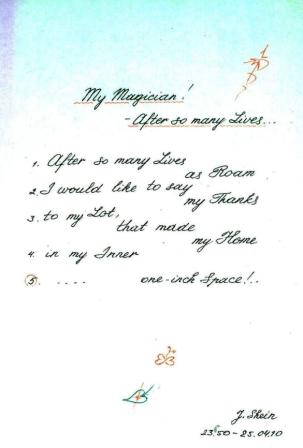 My Magician!
- After so many Lives...
1. After so many Lives
as Roam
2. I would like to say
my Thanks
3. to my Lot,
that made
my Home
4. in my Inner
5. .... one-inch Space!..
J. Shein
23.50 - 25.04.10